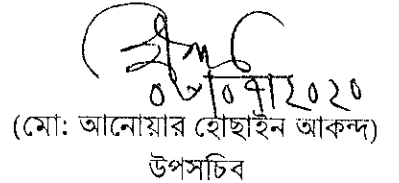 ০৮/০৭/২০২০
(মো: আনোয়ার হোছাইন আকন্দ)
উপসচিব